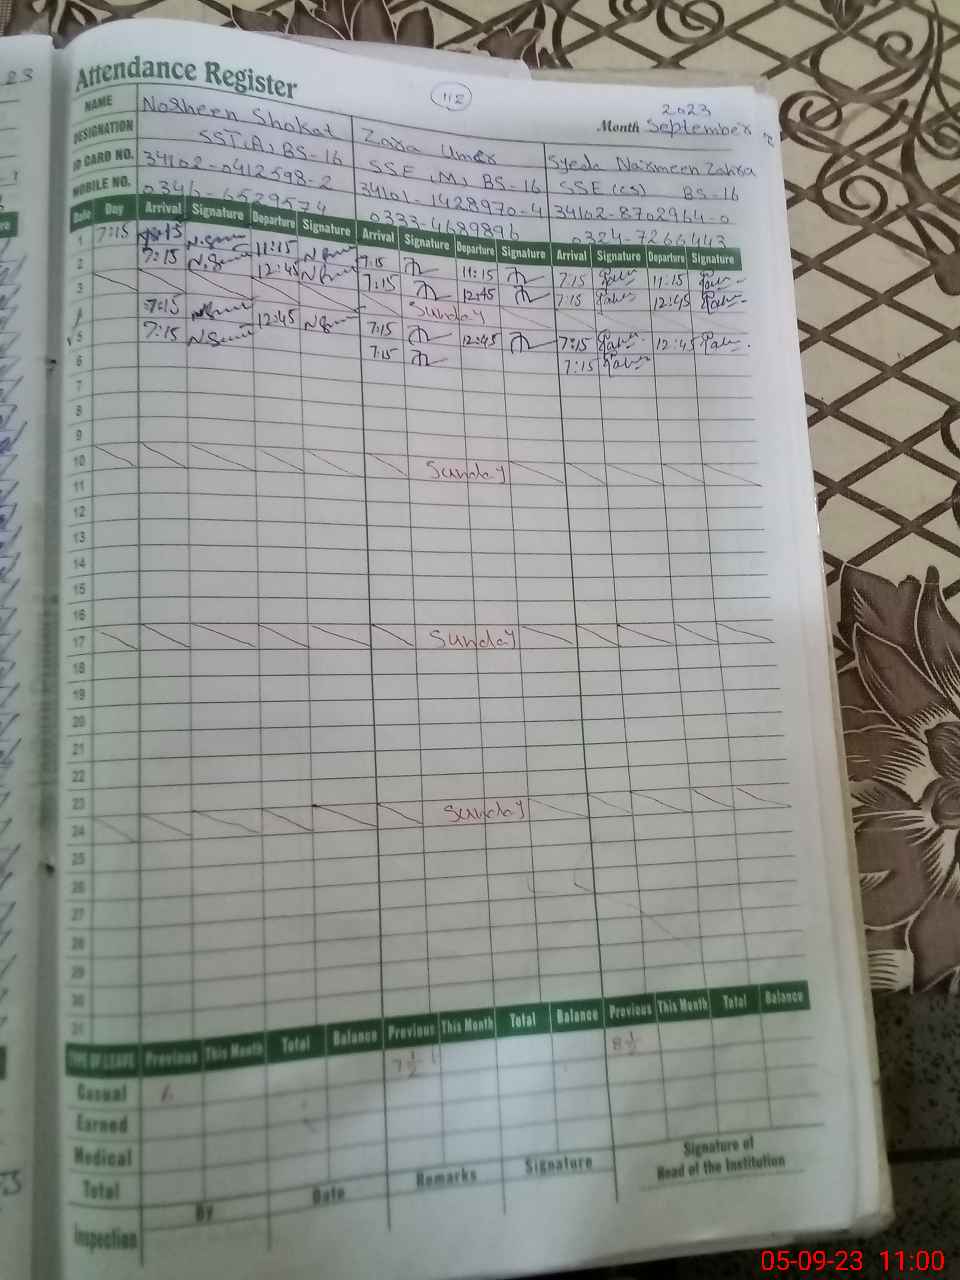 23
Attendance Register
112
2023
Month September
NAME Nosheen Shokat Zara Umer Syeda Narmeen Zahra
DESIGNATION SST,A, BS-16 SSE,M, BS-16 SSE (cs) BS-16
ID CARD NO. 34102-0412598-2 34101-1428970-4 34102-8702964-0
MOBILE NO. 0346-6529574 0333-4689896 0324-7266443
Date Day Arrival Signature Departure Signature Arrival Signature Departure Signature Arrival Signature Departure Signature
1 7:15 7:15 11:15 7:15 11:15 7:15 11:15
2 7:15 12:45 7:15 12:45 7:15 12:45
3 Sunday
7:15 12:45 7:15 12:45 7:15 12:45
5 7:15 7:15 7:15
6
7
8
9
10 Sunday
11
12
13
14
15
16
17 Sunday
18
19
20
21
22
23
24 Sunday
25
26
27
28
29
30
31
TYPE OF LEAVE Previous This Month Total Balance Previous This Month Total Balance Previous This Month Total Balance
Casual 7 1/2 8 1/2
Earned
Medical
Total
Inspection By Date Remarks Signature
Signature of
Head of the Institution
05-09-23 11:00